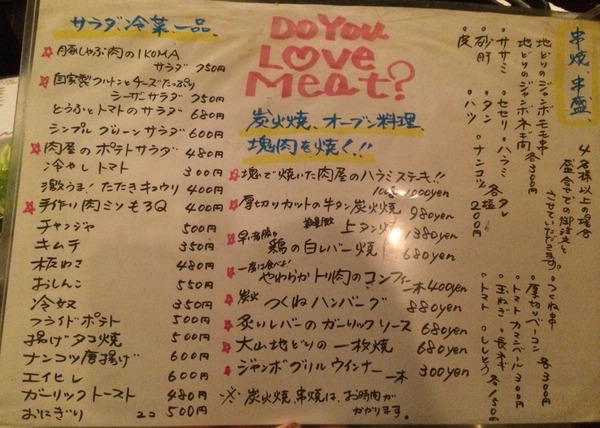 サラダ、冷菜、一品、
豚しゃぶ肉のIKOMA
サラダ 750円
自家製クルトンとチーズたっぷり
シーザーサラダ 750円
とうふとトマトのサラダ 680円
シンプルグリーンサラダ 600円
肉屋のポテトサラダ 480円
冷やしトマト 300円
激うま!たたきキュウリ 400円
手作り肉ミソもろQ 400円
チャンジャ 500円
キムチ 350円
板わさ 480円
おしんこ 550円
冷奴 350円
フライドポテト 500円
揚げタコ焼 500円
ナンコツ唐揚げ 600円
エイヒレ 600円
ガーリックトースト 480円
おにぎり 2コ 500円
Do You
Love
Meat?
炭火焼、オーブン料理、
塊肉を焼く!!
塊で焼いた肉屋のハラミステーキ!!
1000yen
厚切りカットの牛タン炭火焼 980yen
上タン焼 1380yen
早い者勝ち
鶏の白レバー焼 680yen
一度は食べよ!
やわらかトリ肉のコンフィ 一本400yen
炭火 つくねハンバーグ 880yen
炙りレバーのガーリックソース 680yen
大山地どりの一枚焼 680yen
ジャンボグリルウインナー 一本 300yen
※ 炭火焼、串焼は、お時間が
かかります。
串焼、串盛、
4名様以上の場合
盛合せでの御注文と
させていただきます。
地どりのジャンボモモ串
地どりのジャンボネギ間 各300円
ササミ セセリ ハラミ 各タレ
砂肝 タン ナンコツ 塩 200円
皮 ハツ
つくね串
厚切りベーコン 各300円
トマトカマンベール 300円
玉ねぎ 長ネギ 各150円
トマト ししとう